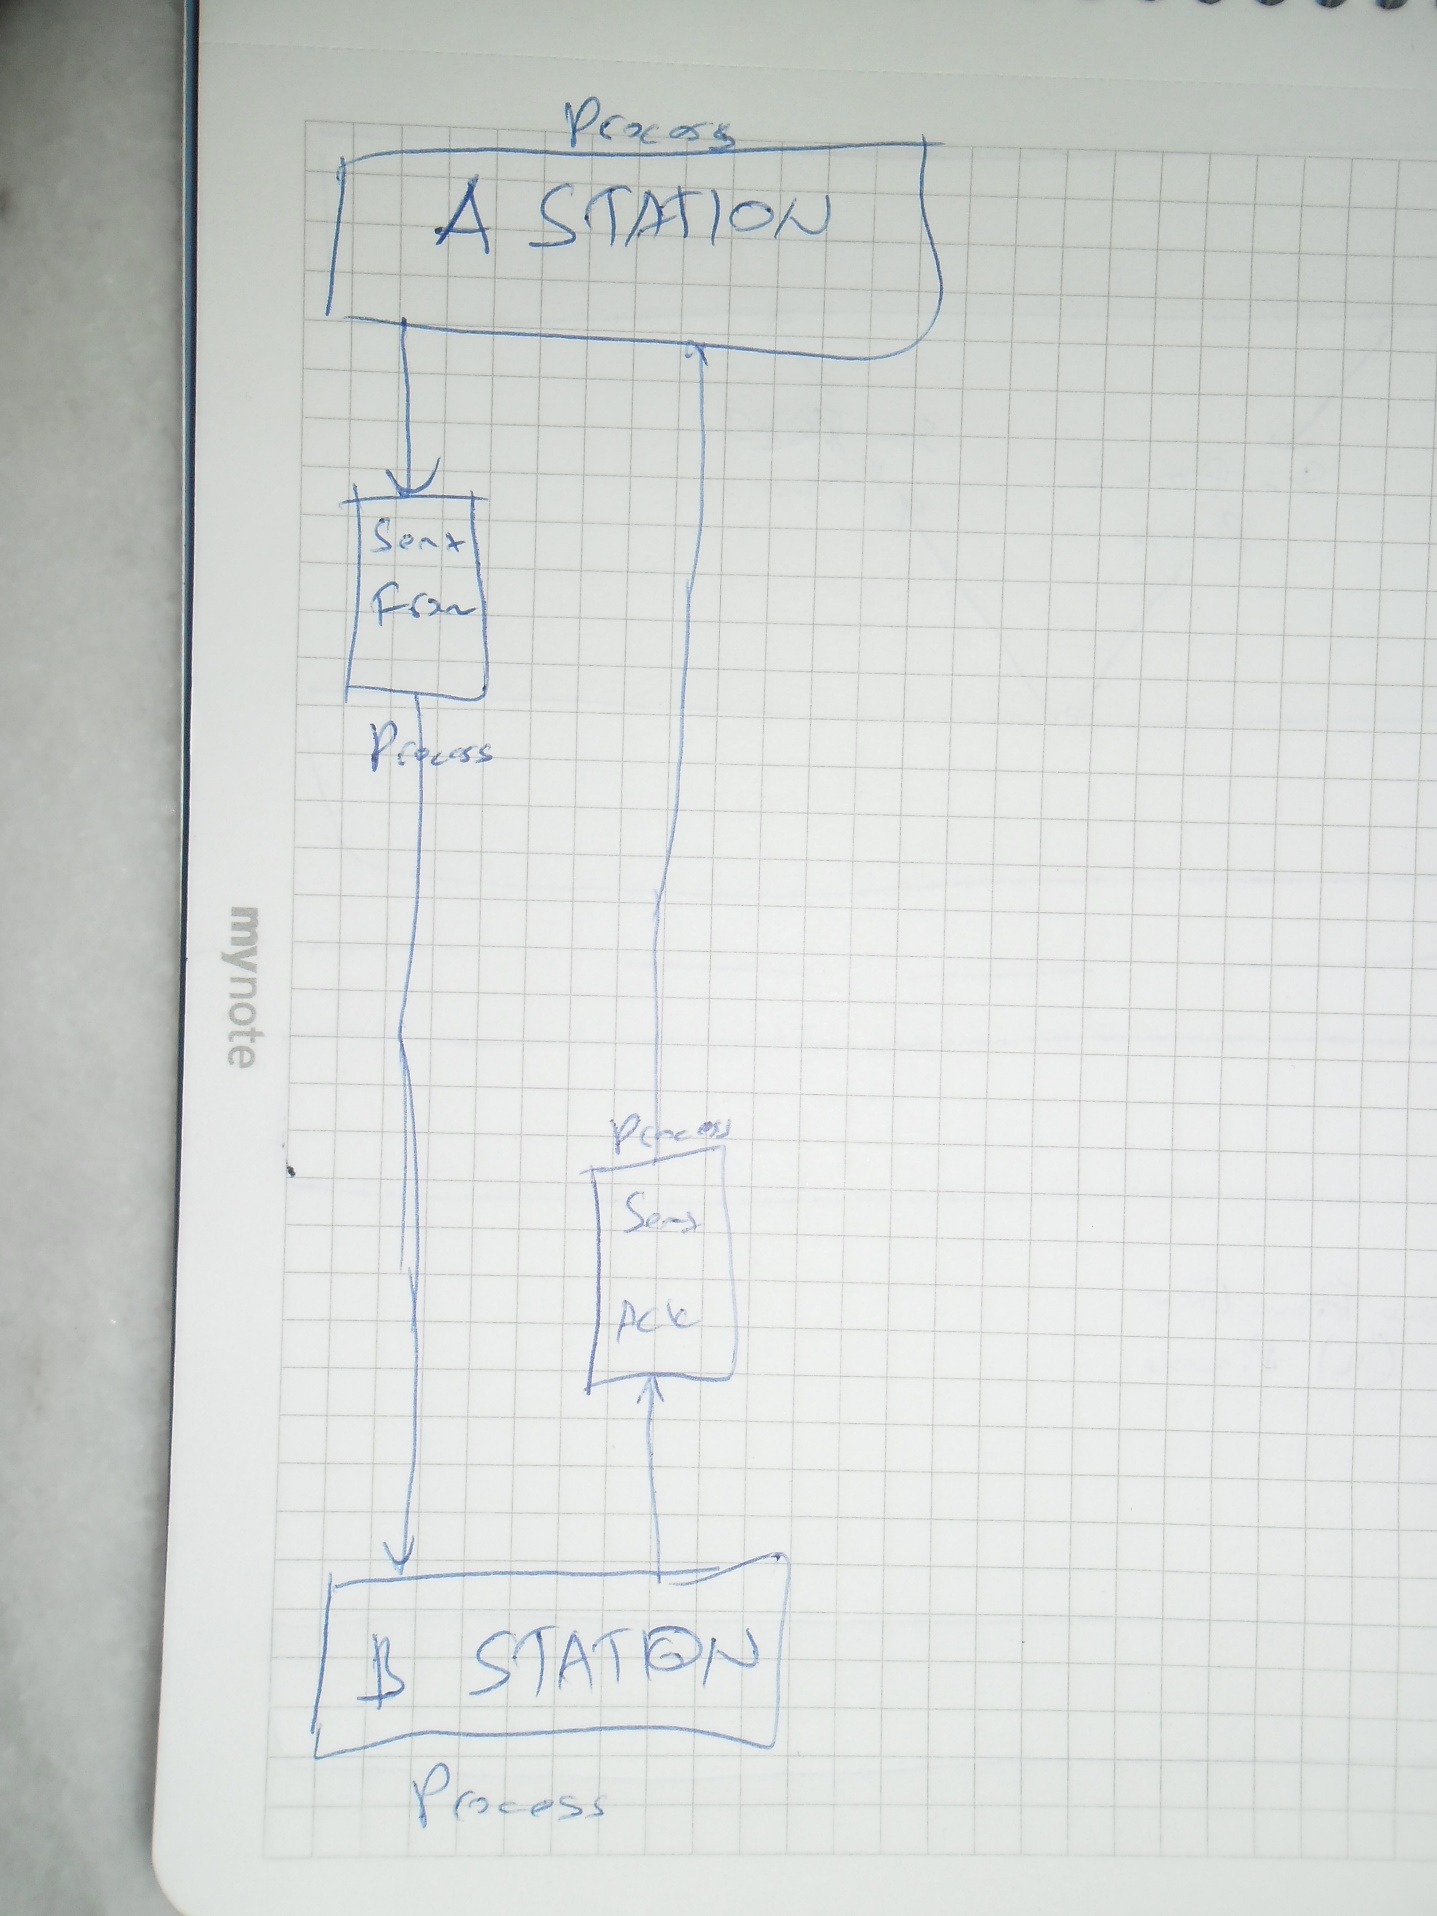 Process
A STATION
Sent
Fram
Process
Process
Sent
Ack
B STATION
Process
mynote